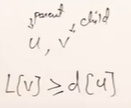 parent child
u, v
L[v] ≥ d[u]